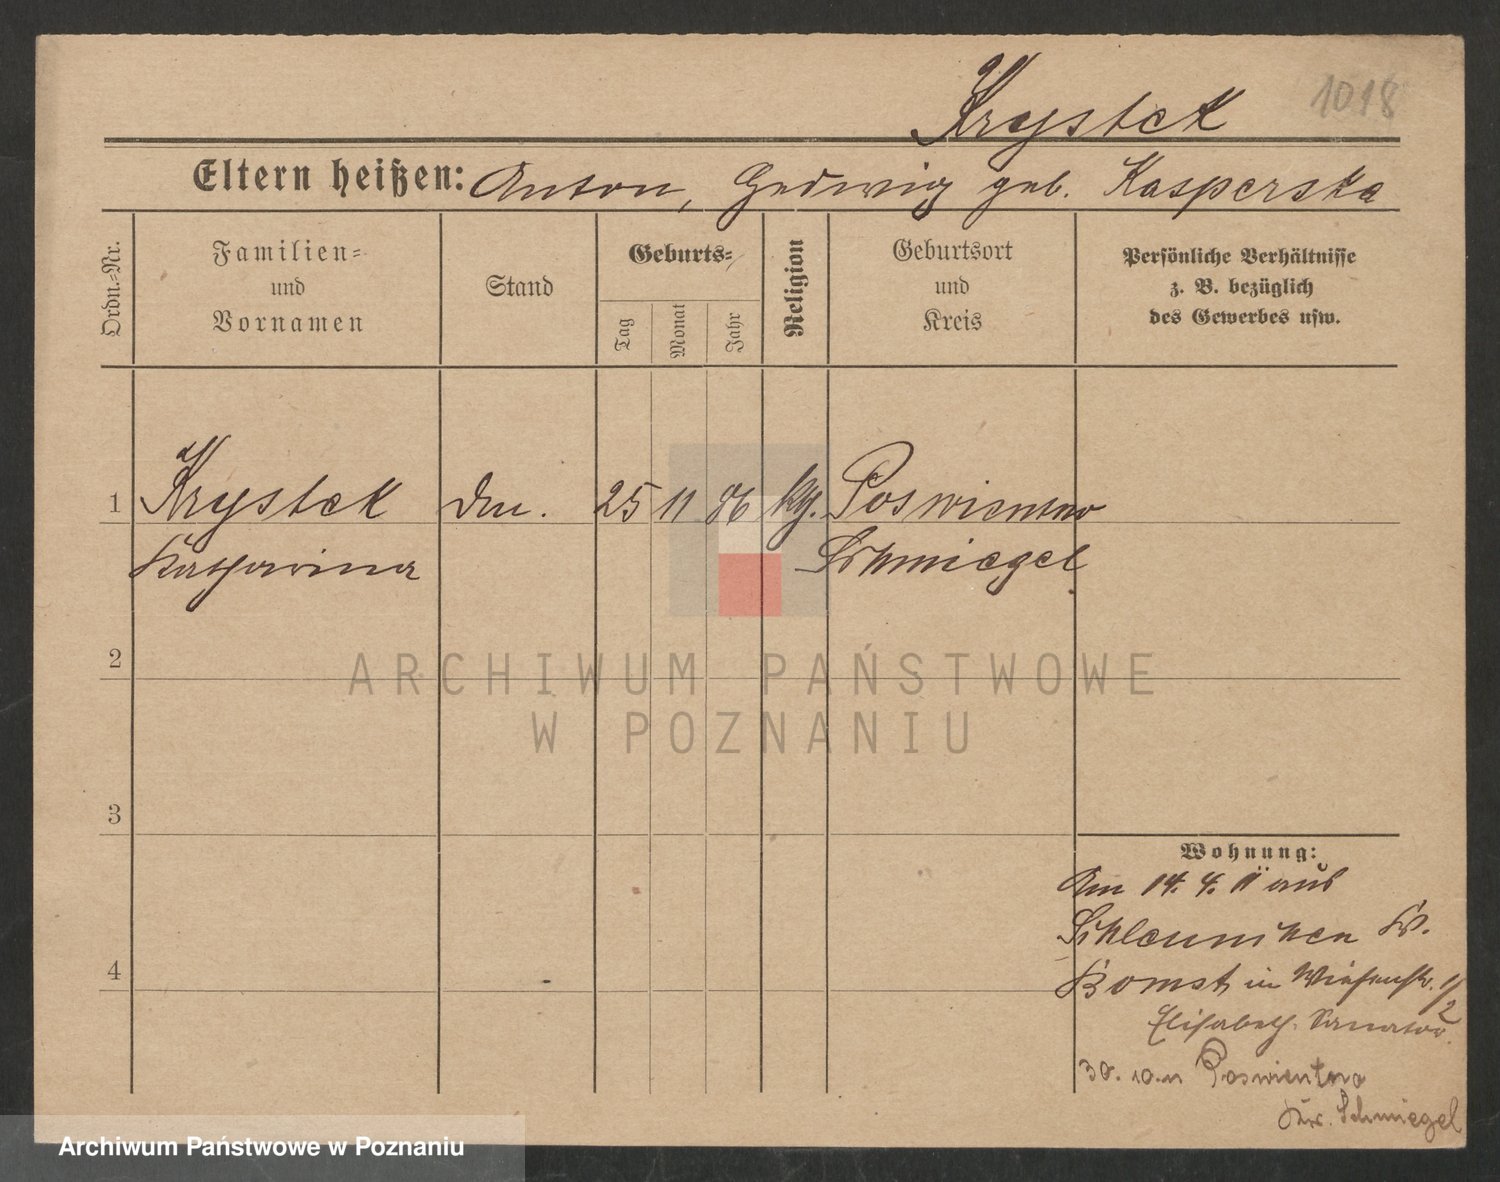 1018
Krystek
Eltern heißen: Anton, Hedwig geb. Kasperska
Ordn.-Nr.
Familien-
und
Vornamen
Stand
Geburts-
Tag
Monat
Jahr
Religion
Geburtsort
und
Kreis
Persönliche Verhältnisse
z. B. bezüglich
des Gewerbes usw.
1 Krystek 25 11 86 Poswientno
Katharina Schmiegel
2
ARCHIWUM PAŃSTWOWE
W POZNANIU
3
Wohnung:
Am 14. 4. 11 aus
4
Bomst in Wiesenstr. 1/2
Elisabeth. Sanator.
30. 10. 11 Poswientno
Kr. Schmiegel
Archiwum Państwowe w Poznaniu